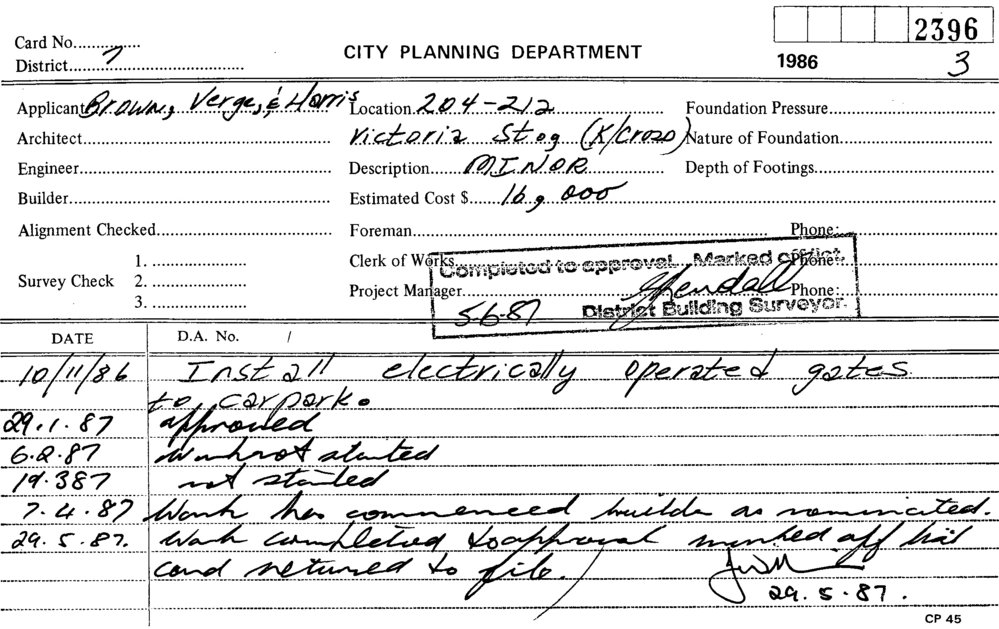 2396
Card No.
District 7
CITY PLANNING DEPARTMENT
1986
3
Applicant Brown, Verge, & Harris Location 204-212 Foundation Pressure
Architect Victoria St, (K/Cross) Nature of Foundation
Engineer Description MINOR Depth of Footings
Builder Estimated Cost $ 16,000
Alignment Checked Foreman Phone:
1.
Clerk of Works Phone:
Survey Check 2.
Project Manager Phone:
3.
Completed to approval. Marked off list.
5-6-87 District Building Surveyor.
DATE D.A. No. /
10/11/86 Install electrically operated gates
to carpark.
29.1.87 approved
6.2.87 Work not started
19.3.87 not started
7.4.87 Work has commenced builder as nominated.
29.5.87. Work completed to approval marked off list
card returned to file.
29.5.87.
CP 45